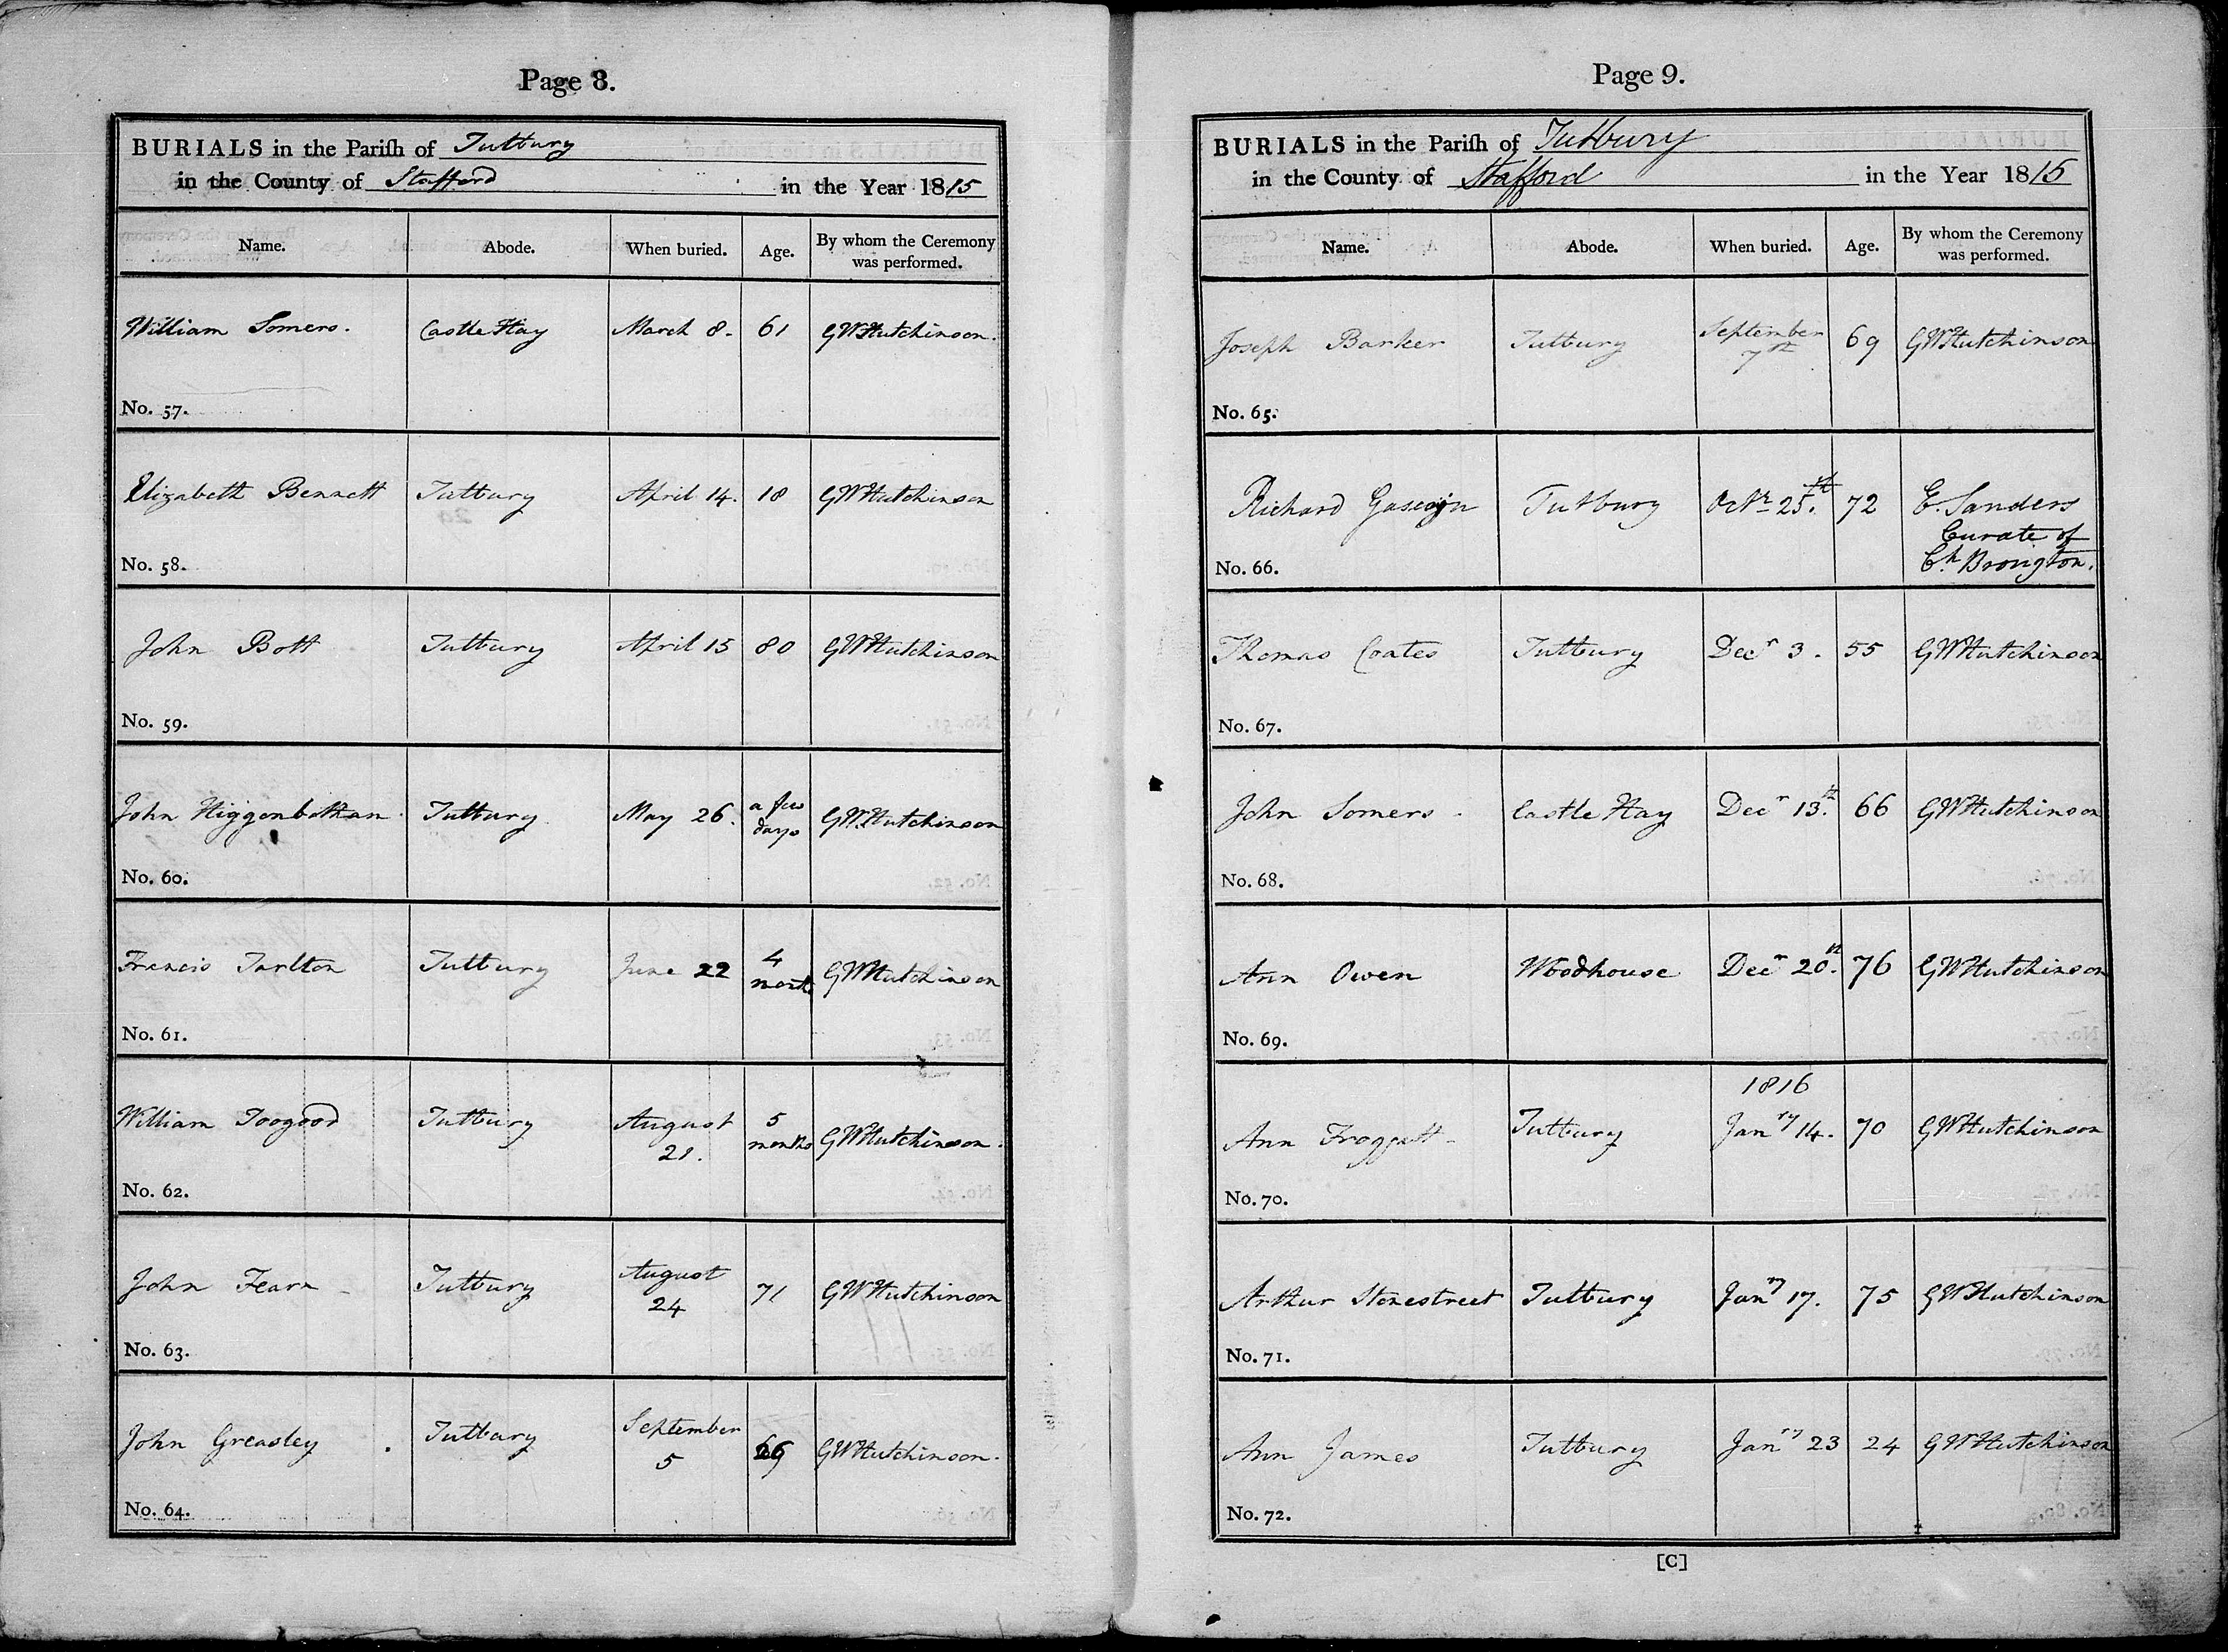 Page 8.
BURIALS in the Pariſh of Tutbury
in the County of Stafford in the Year 1815
Name. Abode. When buried. Age. By whom the Ceremony
was performed.
William Somers. Castle Hay March 8. 61 GWHutchinson.
No. 57.
Elizabeth Bennett Tutbury April 14. 18 GWHutchinson
No. 58.
John Bott Tutbury April 15 80 GWHutchinson
No. 59.
John Higgenbotham Tutbury May 26. a few
days GWHutchinson
No. 60.
Francis Tarlton Tutbury June 22 4
month GWHutchinson
No. 61.
William Toogood Tutbury August
21. 5
months GWHutchinson.
No. 62.
John Fearn Tutbury August
24 71 GWHutchinson
No. 63.
John Greasley Tutbury September
5 GWHutchinson.
No. 64.
Page 9.
BURIALS in the Pariſh of Tutbury
in the County of Stafford in the Year 1815
Name. Abode. When buried. Age. By whom the Ceremony
was performed.
Joseph Barker Tutbury September
7th 69 GWHutchinson
No. 65.
Richard Gascoyn Tutbury Octr 25th. 72 E. Sanders
Curate of
Ch. Broughton.
No. 66.
Thomas Coates Tutbury Decr 3. 55 GWHutchinson
No. 67.
John Somers Castle Hay Decr 13th. 66 GWHutchinson
No. 68.
Ann Owen Woodhouse Decr 20th. 76 GWHutchinson
No. 69.
1816
Ann Froggatt Tutbury Janry 14. 70 GWHutchinson
No. 70.
Arthur Stonestreet Tutbury Janry 17. 75 GWHutchinson
No. 71.
Ann James Tutbury Janry 23 24 GWHutchinson
No. 72.
[C]